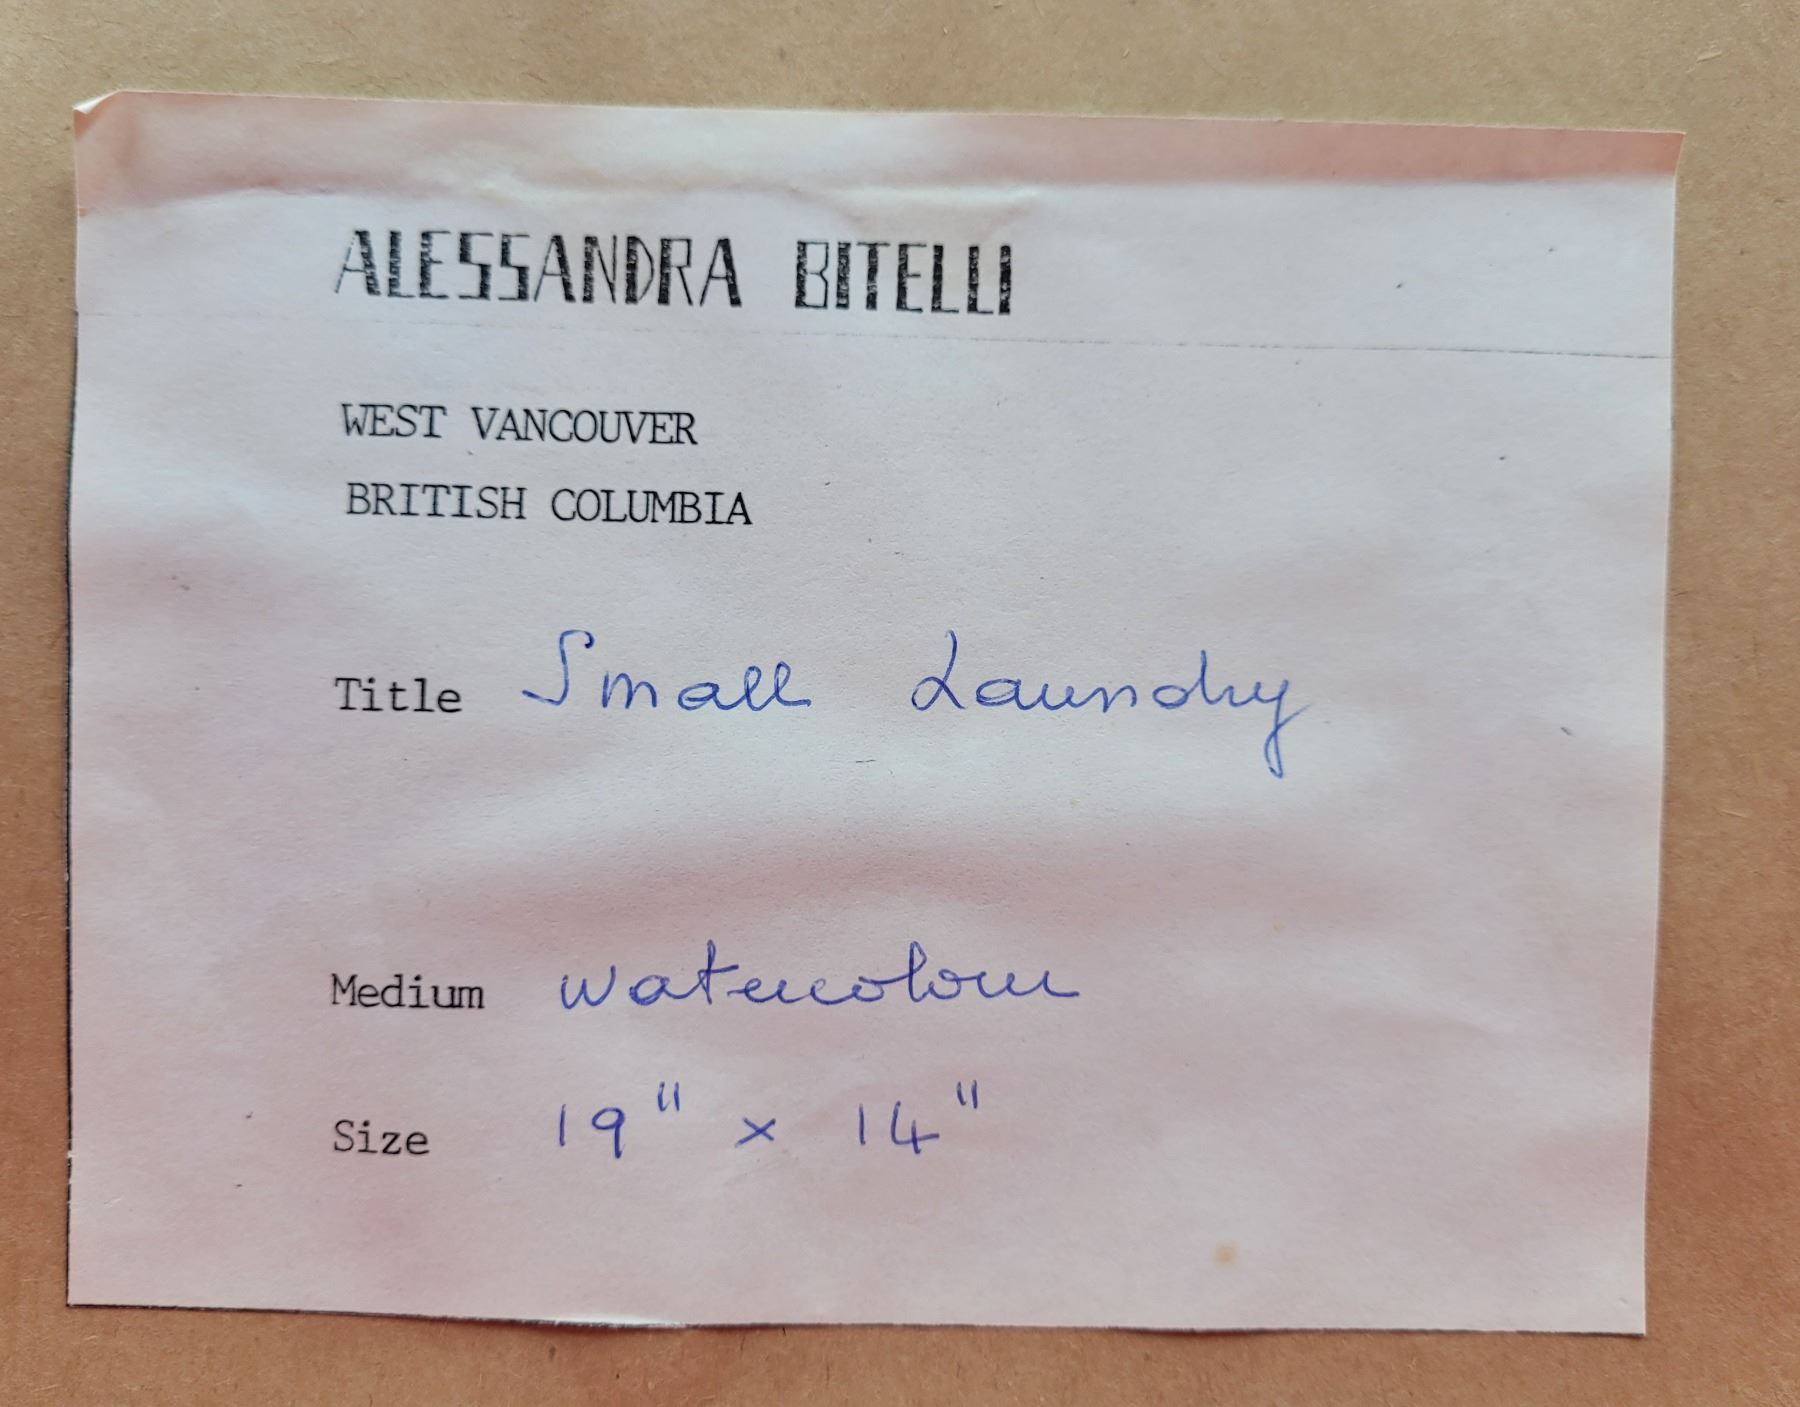 ALESSANDRA BITELLI
WEST VANCOUVER
BRITISH COLUMBIA
Title Small Laundry
Medium watercolour
Size 19" x 14"